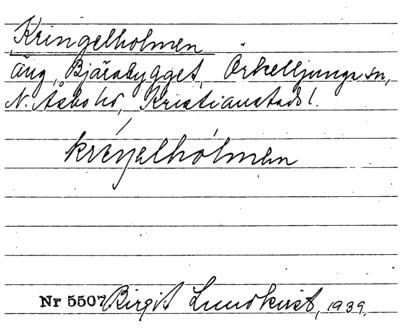 Kringelholmen
Äng, Bjärabygget, Örkelljungs sn,
N. Åsbo hd, Kristianstads l.
kréŋəlhòlmən
Nr 5507 Birgit Lundkvist, 1939.